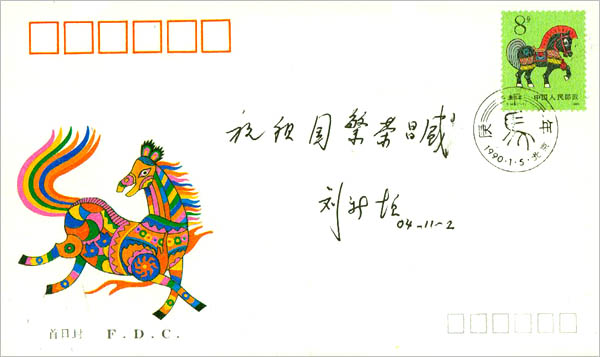 8分
中国人民邮政
庚午年
1990·1·5·北京
祝祖国繁荣昌盛
04-11-2
首日封 F.D.C.